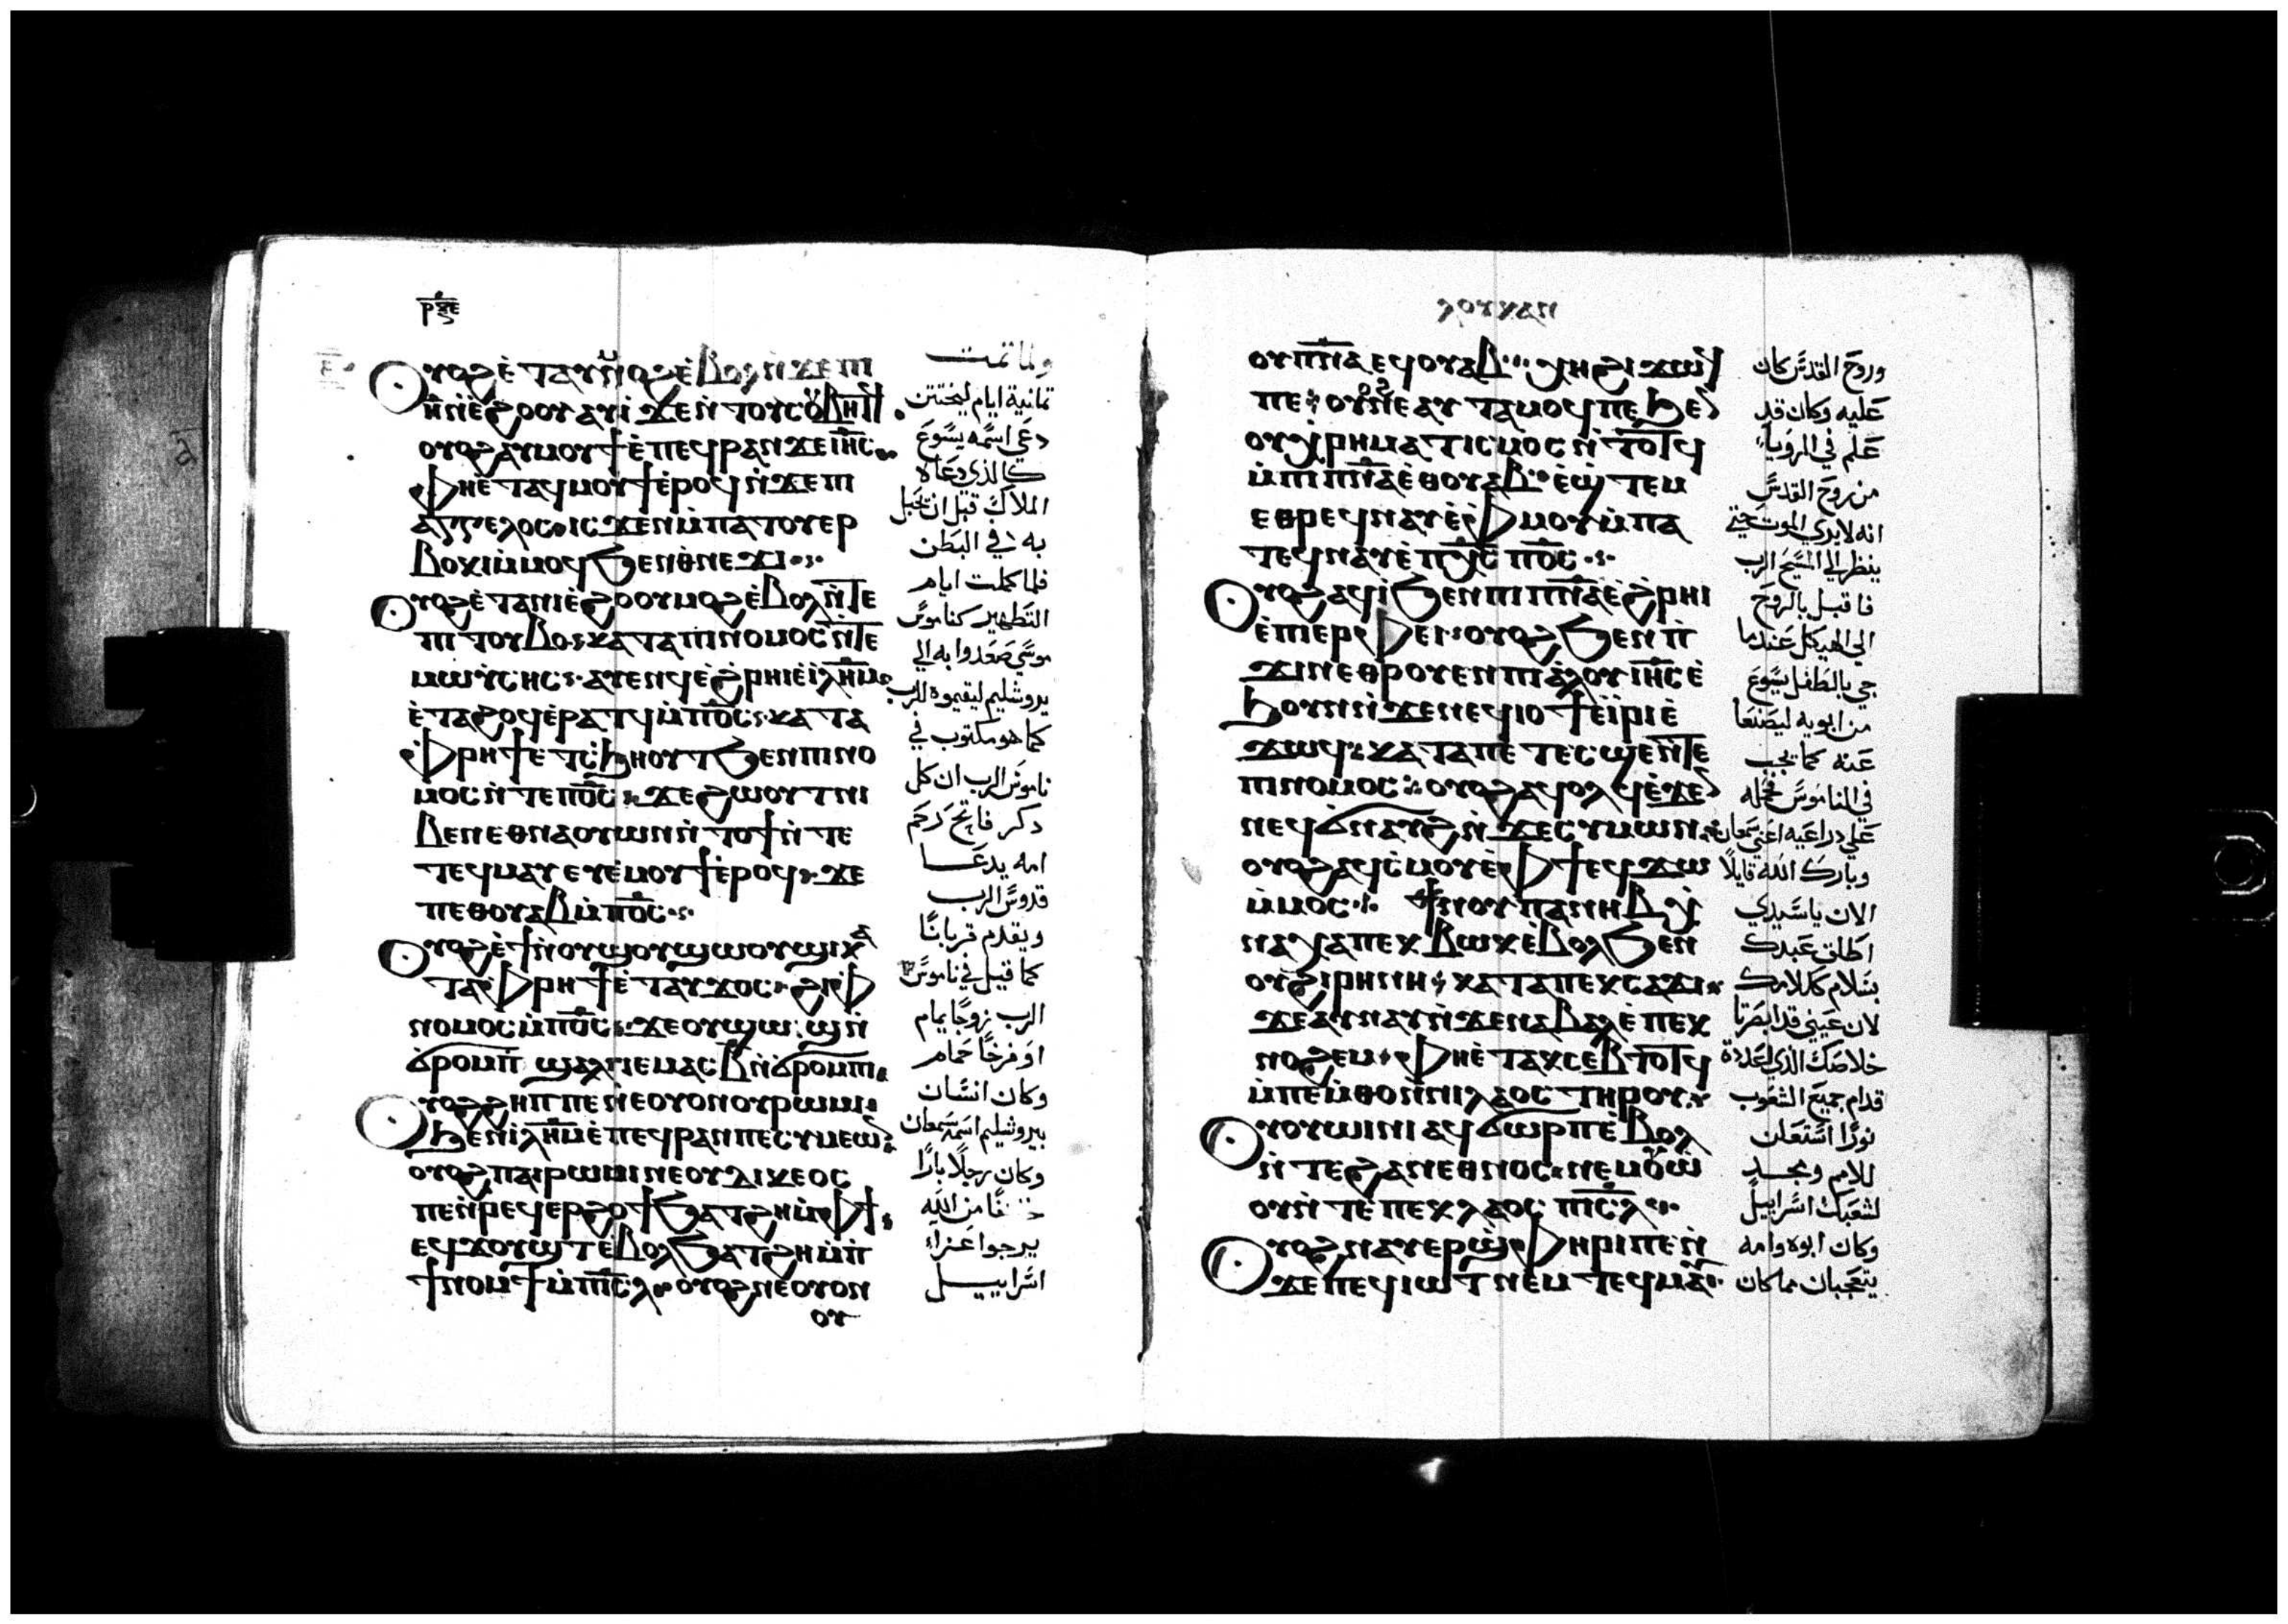 ⲟⲩⲟϩ ⲉ̀ⲧⲁⲩⲙⲟϩ ⲉ̀ⲃⲟⲗ ⲛ̀ϫⲉ ⲡⲓ
ⲏ̅ ⲛ̀ⲉ̀ϩⲟⲟⲩ ⲁⲩⲓ̀ ϫⲉ ⲛ̀ⲧⲟⲩⲥⲟⲩⲃⲏⲧϥ
ⲟⲩⲟϩ ⲁⲩⲙⲟⲩϯ ⲉ̀ⲡⲉϥⲣⲁⲛ ϫⲉ ⲓⲏ̅ⲥ̅
ⲫⲏ ⲉ̀ⲧⲁϥⲙⲟⲩϯ ⲉ̀ⲣⲟϥ ⲛ̀ϫⲉ ⲡⲓ
ⲁⲅⲅⲉⲗⲟⲥ ⲓⲥϫⲉⲛ ⲙ̀ⲡⲁⲧⲟⲩⲉⲣ
ⲃⲟⲕⲓ ⲙ̀ⲙⲟϥ ϧⲉⲛ ⲑⲛⲉϫⲓ
ⲟⲩⲟϩ ⲉ̀ⲧⲁ ⲛⲓⲉ̀ϩⲟⲟⲩ ⲙⲟϩ ⲉ̀ⲃⲟⲗ ⲛ̀ⲧⲉ
ⲡⲓⲧⲟⲩⲃⲟ ⲕⲁⲧⲁ ⲡⲓⲛⲟⲙⲟⲥ ⲛ̀ⲧⲉ
ⲙⲱⲩ̀ⲥⲏⲥ ⲁⲩⲉⲛϥ ⲉ̀ϩⲣⲏⲓ ⲉ̀ⲓ̅ⲗ̅ⲏ̅ⲙ̅
ⲉ̀ⲧⲁϩⲟϥ ⲉ̀ⲣⲁⲧϥ ⲙ̀ⲡ̅ⲟ̅ⲥ̅ ⲕⲁⲧⲁ
ⲫⲣⲏϯ ⲉ̀ⲧⲥ̀ϧⲏⲟⲩⲧ ϧⲉⲛ ⲡⲓⲛⲟ
ⲙⲟⲥ ⲛ̀ⲧⲉ ⲡ̅ⲟ̅ⲥ̅ ϫⲉ ϩⲱⲟⲩⲧ ⲛⲓ
ⲃⲉⲛ ⲉⲑⲛⲁⲟⲩⲱⲛ ⲛ̀ⲧⲟϯ ⲛ̀ⲧⲉ
ⲧⲉϥⲙⲁⲩ ⲉⲩⲉ̀ⲙⲟⲩϯ ⲉ̀ⲣⲟϥ ϫⲉ
ⲡⲉⲑⲟⲩⲁⲃ ⲙ̀ⲡ̅ⲟ̅ⲥ̅
ⲟⲩⲟϩ ⲉ̀ϯ ⲛ̀ⲟⲩϣⲟⲩϣⲱⲟⲩϣⲓ ⲕⲁ
ⲧⲁ ⲫⲣⲏϯ ⲉ̀ⲧⲁⲩϫⲟⲥ ϩⲓ ⲫ
ⲛⲟⲙⲟⲥ ⲙ̀ⲡ̅ⲟ̅ⲥ̅ ϫⲉ ⲟⲩϣⲱϣ ⲛ̀
ϭⲣⲟⲙⲡ ϣⲁⲗ ⲓⲉ ⲙⲁⲥ ⲃ̅ ⲛ̀ϭⲣⲟⲙⲡⲓ
ⲟⲩⲟϩ ϩⲏⲡⲡⲉ ⲛⲉ ⲟⲩⲟⲛ ⲟⲩⲣⲱⲙⲓ
ϧⲉⲛ ⲓ̅ⲗ̅ⲏ̅ⲙ̅ ⲉ̀ⲡⲉϥⲣⲁⲛ ⲡⲉ ⲥⲩⲙⲉⲱⲛ
ⲟⲩⲟϩ ⲡⲁⲓⲣⲱⲙⲓ ⲛⲉ ⲟⲩⲇⲓⲕⲉⲟⲥ
ⲡⲉ ⲛ̀ⲣⲉϥⲉⲣϩⲟϯ ϧⲁⲧϩⲏ ⲙ̀ⲫϯ
ⲉϥϫⲟⲩϣⲧ ⲉ̀ⲃⲟⲗ ϧⲁⲧϩⲏ ⲙ̀ⲡ
ϯⲛⲟⲙϯ ⲙ̀ⲡⲓ̅ⲥ̅ⲗ̅ ⲟⲩⲟϩ ⲛⲉ ⲟⲩⲟⲛ
ⲟⲩ
ولما تمت
ثمانية ايام ليختتن
دعي اسمه يسوع
كالذي دعاه
الملاك قبل ان تحبل
به في البطن
فلما كملت ايام
التطهير كناموس
موسي صعدوا به الي
يروشليم ليقيموه للرب
كما هو مكتوب في
ناموس الرب ان كل
دكر فاتح رحم
امه يدعا
قدوس الرب
ويقدم قربانا
كما قيل في ناموس
الرب زوجا يمام
او فرخا حمام
وكان انسان
بيروشليم اسمه سمعان
وكان رجلا بارا
من الله
يرجوا عزاء
اسراييل
ⲗⲟⲩⲕⲁⲛ
ⲟⲩⲡ̅ⲛ̅ⲁ̅ ⲉϥⲟⲩⲁⲃ ⲭⲏ ϩⲓϫⲱϥ
ⲡⲉ ⲟⲩⲟϩ ⲛⲉ ⲁⲩⲧⲁⲙⲟϥ ⲡⲉ ϧⲉⲛ
ⲟⲩⲭⲣⲏⲙⲁⲧⲓⲥⲙⲟⲥ ⲛ̀ⲧⲟⲧϥ
ⲙ̀ⲡⲓⲡ̅ⲛ̅ⲁ̅ ⲉ̀ⲑⲟⲩⲁⲃ ⲉ̀ϣⲧⲉⲙ
ⲉⲑⲣⲉϥⲛⲁⲩ ⲉ̀ⲫⲙⲟⲩ ⲙ̀ⲡⲁ
ⲧⲉϥⲛⲁⲩ ⲉ̀ⲡⲭ̅ⲥ̅ ⲡ̅ⲟ̅ⲥ̅
ⲟⲩⲟϩ ⲁϥⲓ̀ ϧⲉⲛ ⲡⲓⲡ̅ⲛ̅ⲁ̅ ⲉ̀ϩⲣⲏⲓ
ⲉ̀ⲡⲓⲉⲣⲫⲉⲓ ⲟⲩⲟϩ ϧⲉⲛ ⲡ̀
ϫⲓⲛⲉⲑⲣⲟⲩⲉⲛ ⲡⲓⲁⲗⲟⲩ ⲓⲏ̅ⲥ̅ ⲉ̀
ϧⲟⲩⲛ ⲛ̀ϫⲉ ⲛⲉϥⲓⲟϯ ⲉ̀ⲓ̀ⲣⲓ ⲉ̀
ϫⲱϥ ⲕⲁⲧⲁ ⲡⲉⲧⲉⲥϣⲉ ⲛ̀ⲧⲉ
ⲡⲓⲛⲟⲙⲟⲥ ⲟⲩⲟϩ ⲁϥⲟⲗϥ ⲉ̀ϫⲉⲛ
ⲛⲉϥϭⲛⲁⲩϩ ⲛ̀ϫⲉ ⲥⲩⲙⲱⲛ
ⲟⲩⲟϩ ⲁϥⲥ̀ⲙⲟⲩ ⲉ̀ⲫϯ ⲉϥϫⲱ
ⲙ̀ⲙⲟⲥ ϯⲛⲟⲩ ⲡⲁⲛⲏⲃ ⲭ
ⲛⲁⲭⲁ ⲡⲉⲕⲃⲱⲕ ⲉ̀ⲃⲟⲗ ϧⲉⲛ
ⲟⲩϩⲓⲣⲏⲛⲏ ⲕⲁⲧⲁ ⲡⲉⲕⲥⲁϫⲓ
ϫⲉ ⲁⲩⲛⲁⲩ ⲛ̀ϫⲉ ⲛⲁⲃⲁⲗ ⲉ̀ⲡⲉⲕ
ⲛⲟϩⲉⲙ ⲫⲏ ⲉ̀ⲧⲁⲕⲥⲉⲃⲧⲟⲧϥ
ⲙ̀ⲡⲉⲙ̀ⲑⲟ ⲛ̀ⲛⲓⲗⲁⲟⲥ ⲧⲏⲣⲟⲩ
ⲟⲩⲟⲩⲱⲓⲛⲓ ⲁϥϭⲱⲣⲡ ⲉ̀ⲃⲟⲗ
ⲛ̀ⲧⲉ ϩⲁⲛⲉⲑⲛⲟⲥ ⲛⲉⲙ ⲟⲩⲱ̀
ⲟⲩ ⲛ̀ⲧⲉ ⲡⲉⲕⲗⲁⲟⲥ ⲡⲓ̅ⲥ̅ⲗ̅
ⲟⲩⲟϩ ⲛⲁⲩⲉⲣϣ̀ⲫⲏⲣⲓ ⲡⲉ ⲛ̀
ϫⲉ ⲡⲉϥⲓⲱⲧ ⲛⲉⲙ ⲧⲉϥⲙⲁⲩ
وروح القدس كان
عليه وكان قد
علم في الرويا
من روح القدس
انه لا يري الموت حتي
ينظر الي المسيح الرب
فاقبل بالروح
الي الهيكل عندما
جي بالطفل يسوع
من ابويه ليصنعا
عنه كما يجب
في الناموس فحمله
علي دراعيه اعني سمعان
وبارك الله قايلا
الان ياسيدي
اطلق عبدك
بسلام ككلامك
لان عيني قد ابصرتا
خلاصك الذي اعددته
قدام جميع الشعوب
نورا استعلن
للامم ومجد
لشعبك اسراييل
وكان ابوه وامه
يتعجبان مما كان